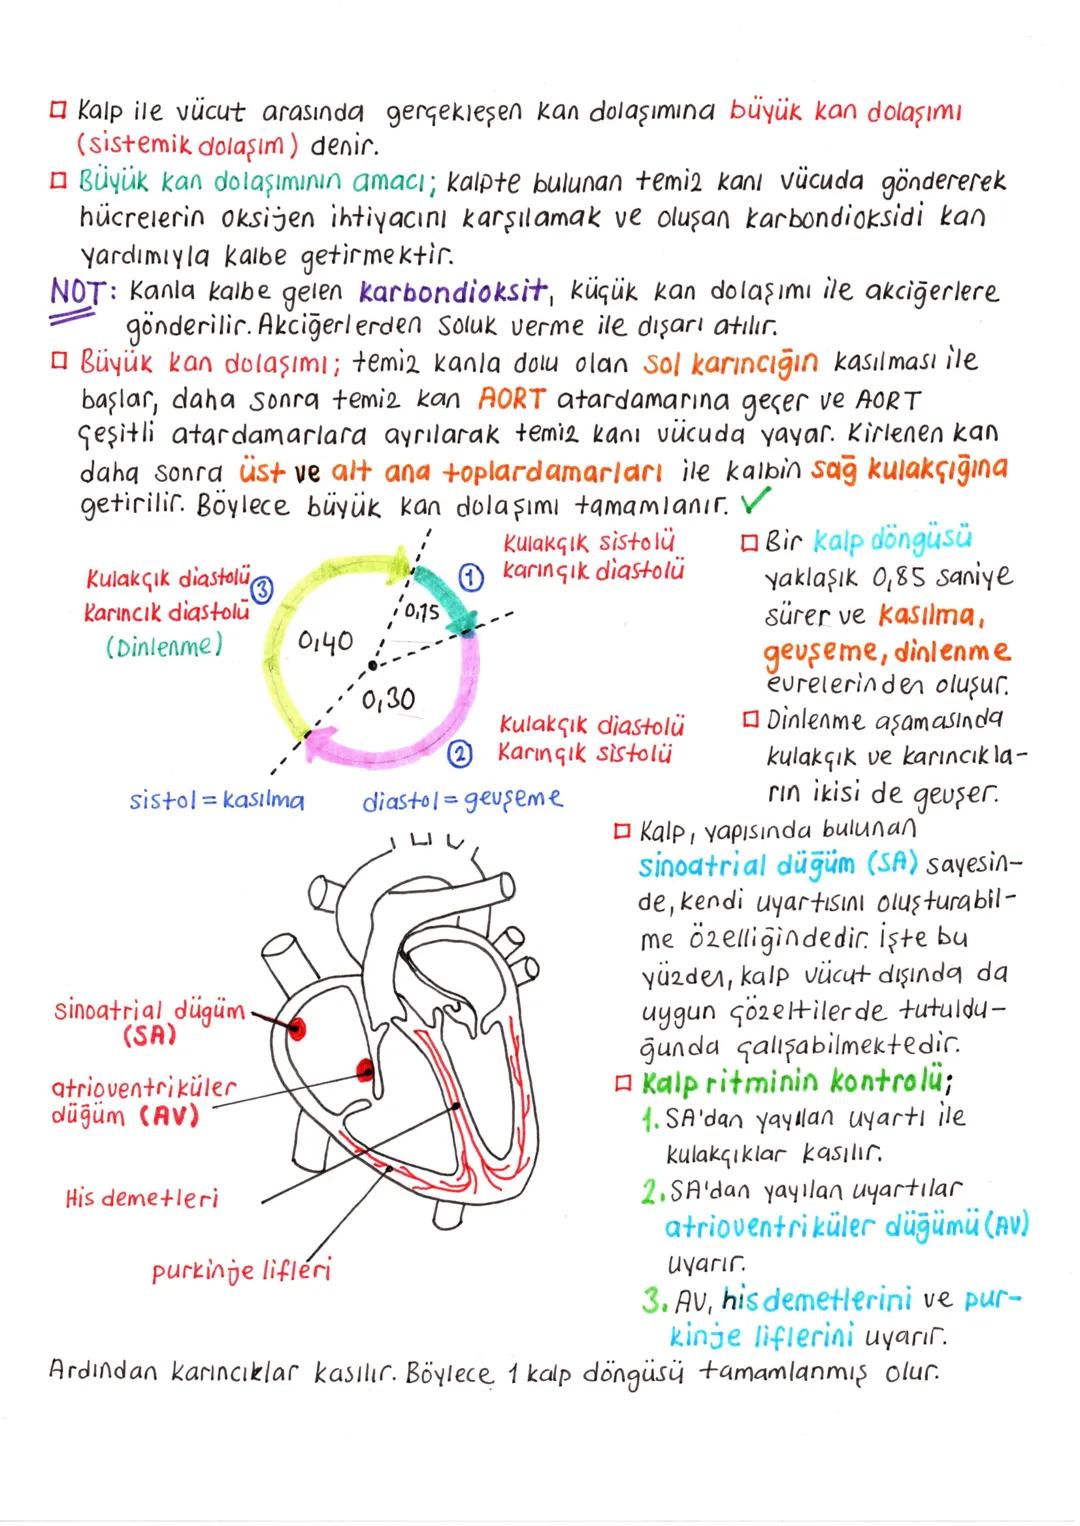 Kalp ile vücut arasında gerçekleşen kan dolaşımına büyük kan dolaşımı
(sistemik dolaşım) denir.
Büyük kan dolaşımının amacı; kalpte bulunan temiz kanı vücuda göndererek
hücrelerin oksijen ihtiyacını karşılamak ve oluşan karbondioksidi kan
yardımıyla kalbe getirmektir.
NOT: Kanla kalbe gelen karbondioksit, küçük kan dolaşımı ile akciğerlere
gönderilir. Akciğerlerden soluk verme ile dışarı atılır.
Büyük kan dolaşımı; temiz kanla dolu olan sol karıncığın kasılması ile
başlar, daha sonra temiz kan AORT atardamarına geçer ve AORT
çeşitli atardamarlara ayrılarak temiz kanı vücuda yayar. Kirlenen kan
daha sonra üst ve alt ana toplardamarları ile kalbin sağ kulakçığına
getirilir. Böylece büyük kan dolaşımı tamamlanır. ✓
Kulakçık sistolü
karınçık diastolü
1
Kulakçık diastolü
Karıncık diastolü
(Dinlenme)
3
0,15
0,40
0,30
Kulakçık diastolü
Karınçık sistolü
2
sistol = kasılma
diastol = gevşeme
Bir kalp döngüsü
yaklaşık 0,85 saniye
sürer ve kasılma,
gevşeme, dinlenme
evrelerinden oluşur.
Dinlenme aşamasında
kulakçık ve karıncıkla-
rın ikisi de gevşer.
Kalp, yapısında bulunan
sinoatrial düğüm (SA) sayesin-
de, kendi uyartısını oluşturabil-
me özelliğindedir. İşte bu
yüzden, kalp vücut dışında da
uygun çözeltilerde tutuldu-
ğunda çalışabilmektedir.
Kalp ritminin kontrolü;
1. SA'dan yayılan uyartı ile
kulakçıklar kasılır.
2. SA'dan yayılan uyartılar
atrioventriküler düğümü (AV)
uyarır.
3. AV, his demetlerini ve pur-
kinje liflerini uyarır.
sinoatrial düğüm
(SA)
atrioventriküler
düğüm (AV)
His demetleri
purkinje lifleri
Ardından karıncıklar kasılır. Böylece 1 kalp döngüsü tamamlanmış olur.